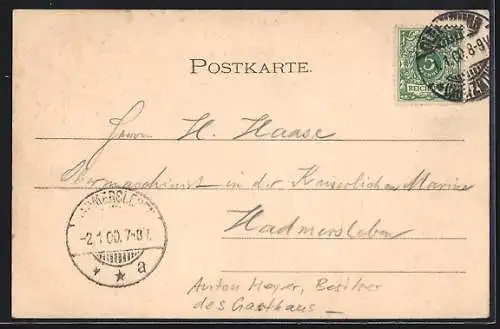 POSTKARTE.
REICHSPOST
Herrn H. Haase
Obermaschinist in der Kaiserlichen Marine
Hadmersleben
HADMERSLEBEN
-2.1.00. 7-8V.
* * a
Anton Meyer, Besitzer
des Gasthaus —